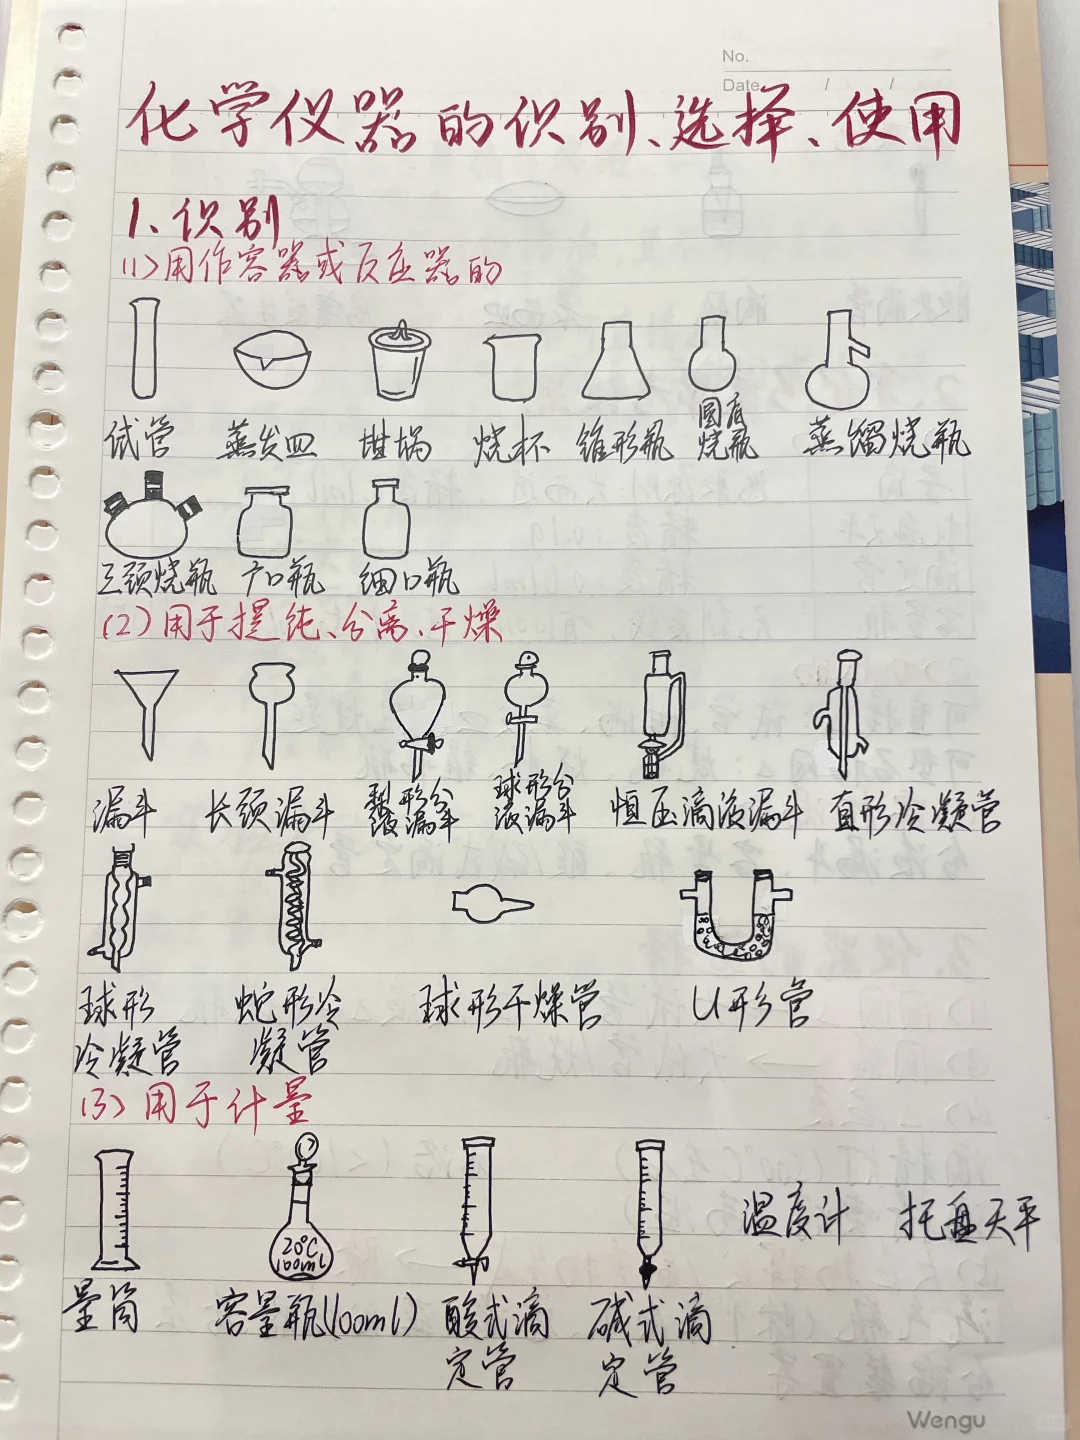 No.
Date / /
化学仪器的识别、选择、使用
1、识别
(1)用作容器或反应器的
试管 蒸发皿 坩埚 烧杯 锥形瓶 圆底烧瓶 蒸馏烧瓶
三颈烧瓶 广口瓶 细口瓶
(2)用于提纯、分离、干燥
漏斗 长颈漏斗 梨形分液漏斗 球形分液漏斗 恒压滴液漏斗 直形冷凝管
球形冷凝管 蛇形冷凝管 球形干燥管 U形管
(3)用于计量
20℃
100ml
温度计 托盘天平
量筒 容量瓶(100ml) 酸式滴定管 碱式滴定管
Wengu